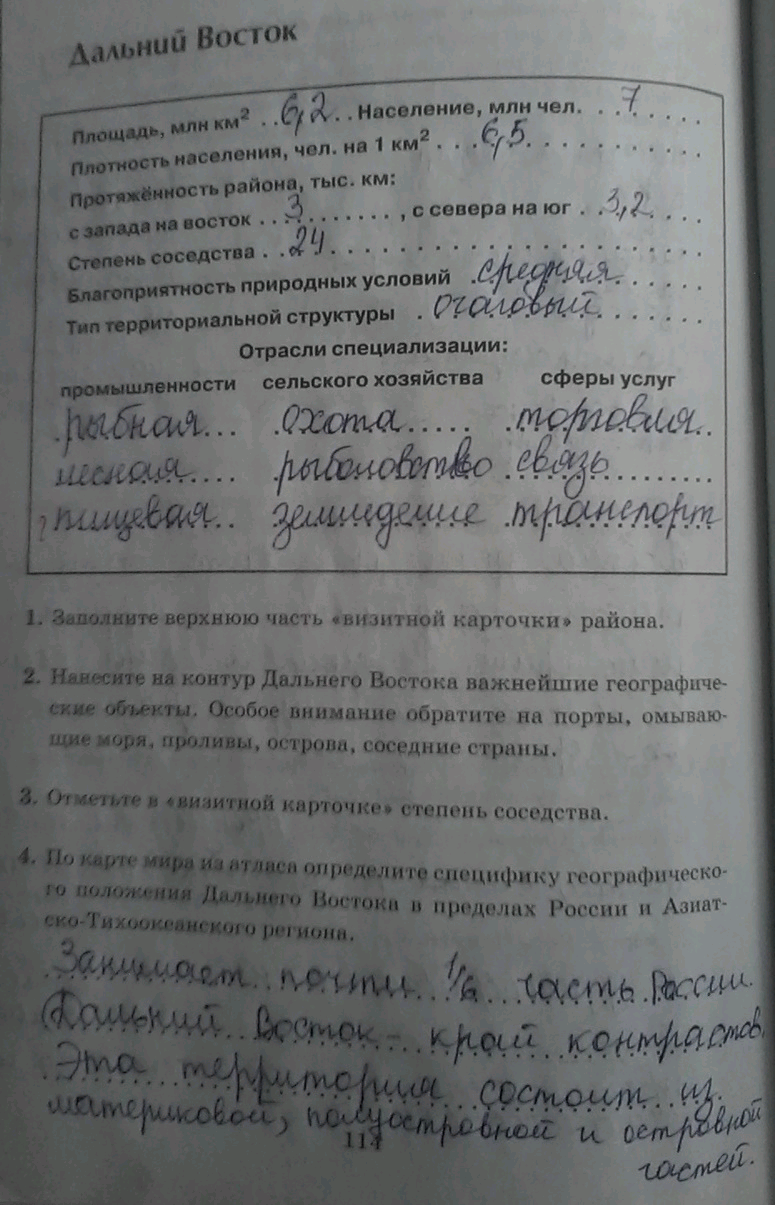 Дальний Восток
Площадь, млн км² . . 6,2 . . Население, млн чел. . . 7 . . . . .
Плотность населения, чел. на 1 км² . . . 6,5 . . . . . . . . . . .
Протяжённость района, тыс. км:
с запада на восток . . 3 . . . . . . . . , с севера на юг . . 3,2 . . . .
Степень соседства . . 24 . . . . . . . . . . . . . . . . . . . . . .
Благоприятность природных условий . средняя . . . . . .
Тип территориальной структуры . очаговый . . . . . . .
Отрасли специализации:
промышленности сельского хозяйства сферы услуг
рыбная . . . охота . . . . . торговля . .
лесная . . . . рыболовство связь . . . . . . . . .
? пищевая . . земледелие транспорт
1. Заполните верхнюю часть «визитной карточки» района.
2. Нанесите на контур Дальнего Востока важнейшие географиче-
ские объекты. Особое внимание обратите на порты, омываю-
щие моря, проливы, острова, соседние страны.
3. Отметьте в «визитной карточке» степень соседства.
4. По карте мира из атласа определите специфику географическо-
го положения Дальнего Востока в пределах России и Азиат-
ско-Тихоокеанского региона.
Занимает почти 1/6 часть России.
Дальний Восток - край контрастов.
Эта территория состоит из
материковой, полуостровной и островной
114
частей.